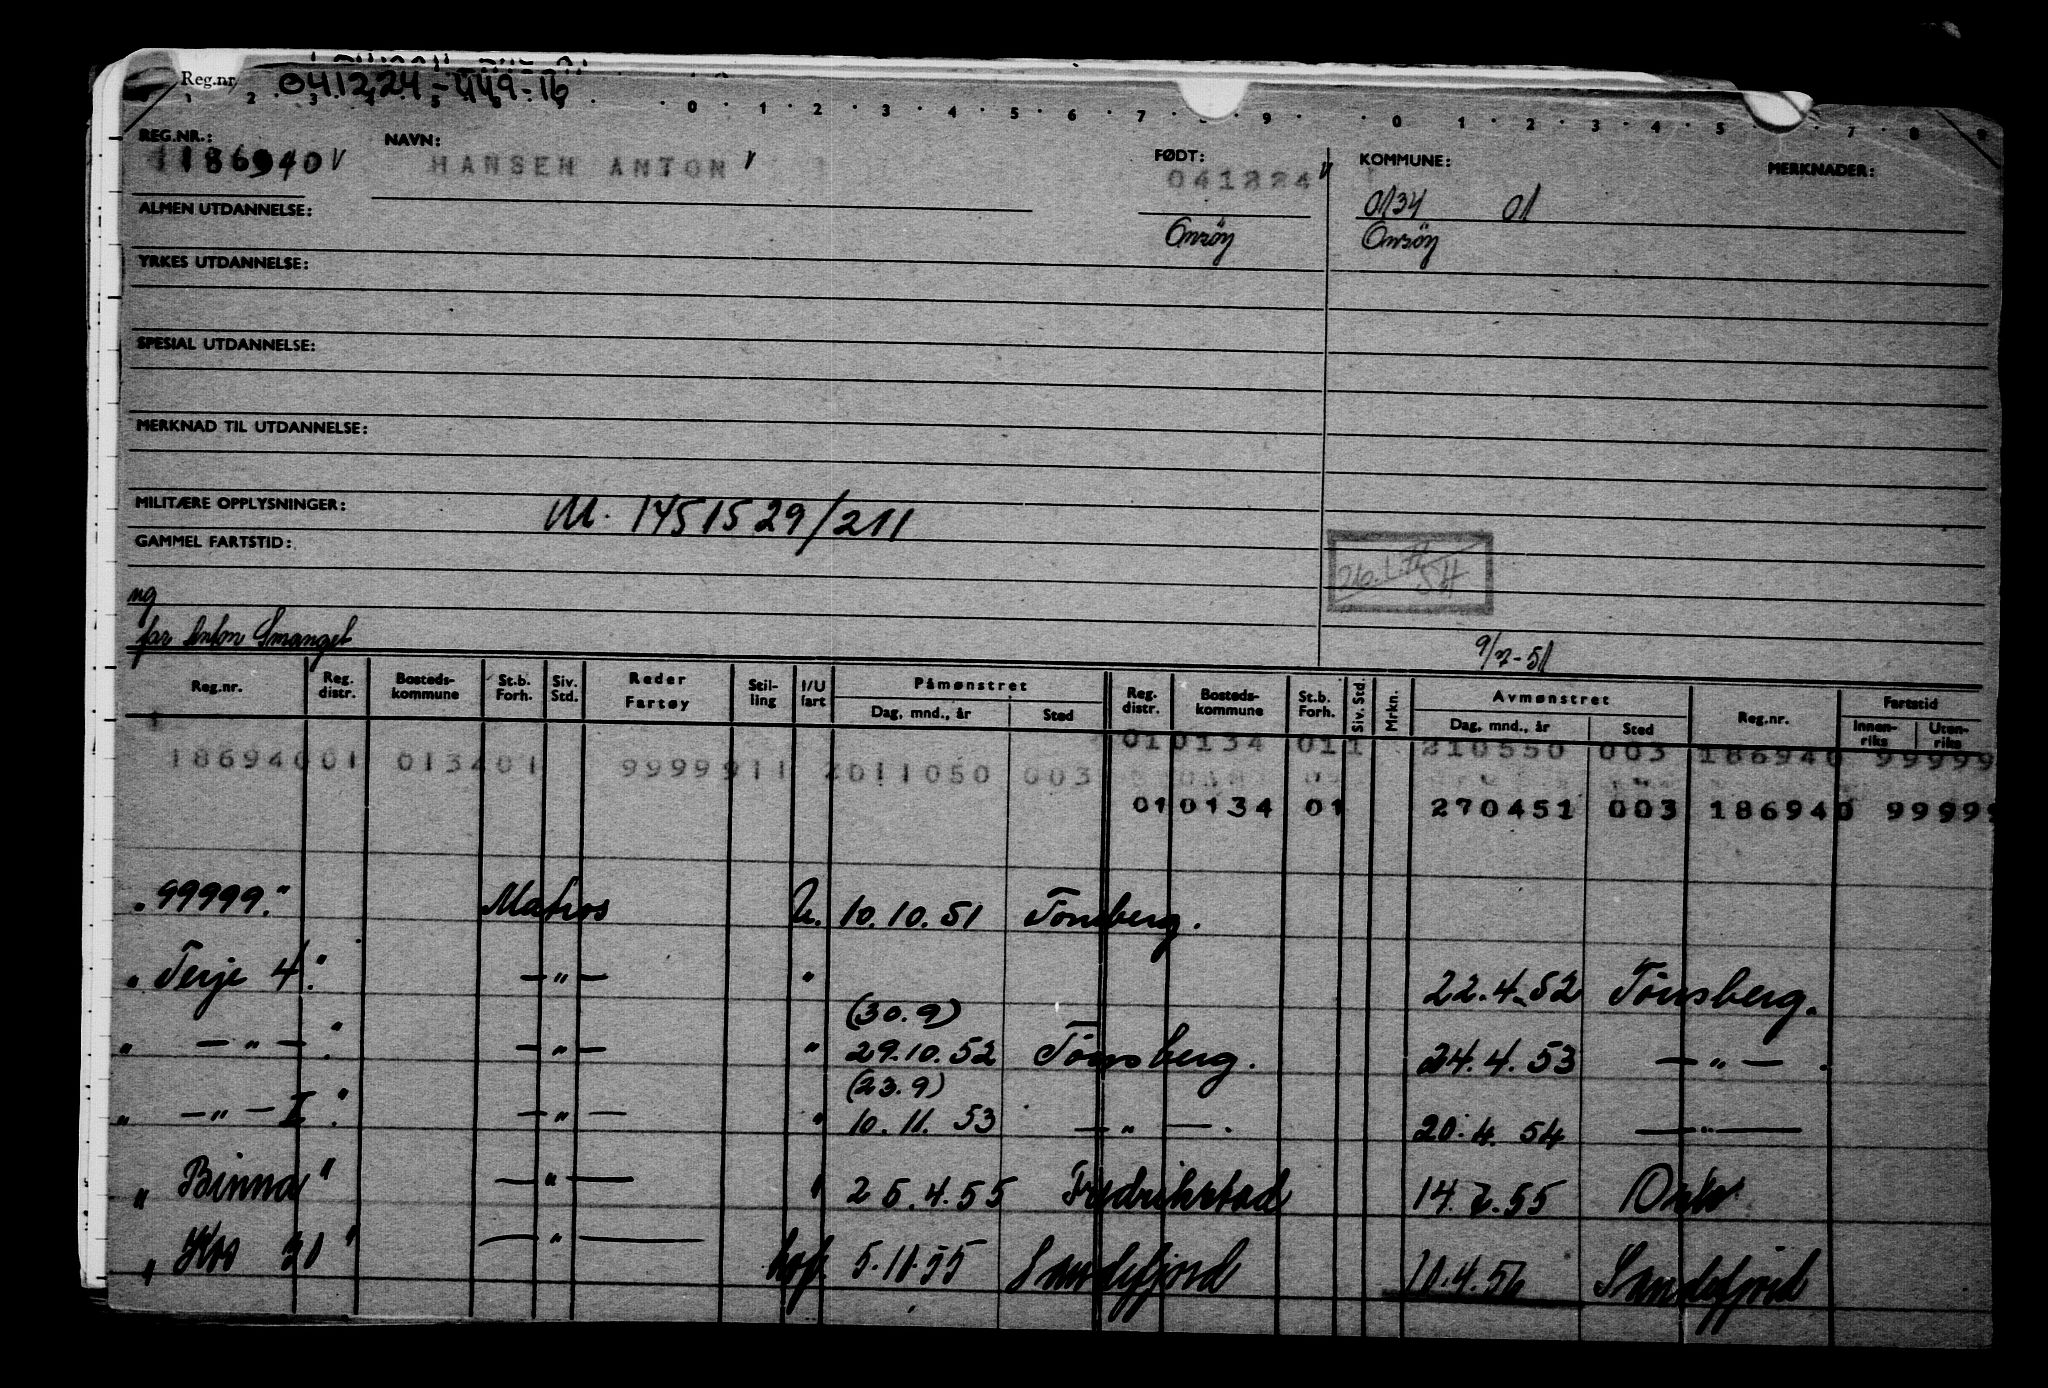 Reg.nr 041224-449-16
1 2 3 4 5 0 1 2 3 4 5 6 7 9 0 1 2 3 4 5 7 8 9
REG.NR.: NAVN: FØDT: KOMMUNE: MERKNADER:
186940 V HANSEN ANTON V 041224 V 0134 01
ALMEN UTDANNELSE: Onsöy Onsöy
YRKES UTDANNELSE:
SPESIAL UTDANNELSE:
MERKNAD TIL UTDANNELSE:
MILITÆRE OPPLYSNINGER: M. 1451529/211
GAMMEL FARTSTID:
ng
far Anton
Reg.nr. Reg. distr. Bosteds-kommune St.b. Forh. Siv. Std. Reder Fartøy Stil-ling I/U fart Påmønstret Dag, mnd., år Sted Reg. distr. Bosteds-kommune St.b. Forh. Siv. Std. Mrkn. Avmønstret Dag, mnd., år Sted Reg.nr. Fartstid Innen-riks Uten-riks
010134 011 210550 003 186940 99999
18694001 013401 9999911 2011050 003
010134 01 270451 003 186940 99999
"99999." Matros U. 10.10.51 Tønsberg.
"Terje 4." — " — " 22.4.52 Tönsberg.
(30.9)
" — " — ." — " — " 29.10.52 Tönsberg. 24.4.53 — " — .
(23.9)
" — " — I ." — " — " 10.11.53 — " — . 20.4.54 — " —
" Binna " — " — " 25.4.55 Fredrikstad 14. .55 Oslo
" Kos " — " — 5.11.55 Sandefjord 10.4.56 Sandefjord